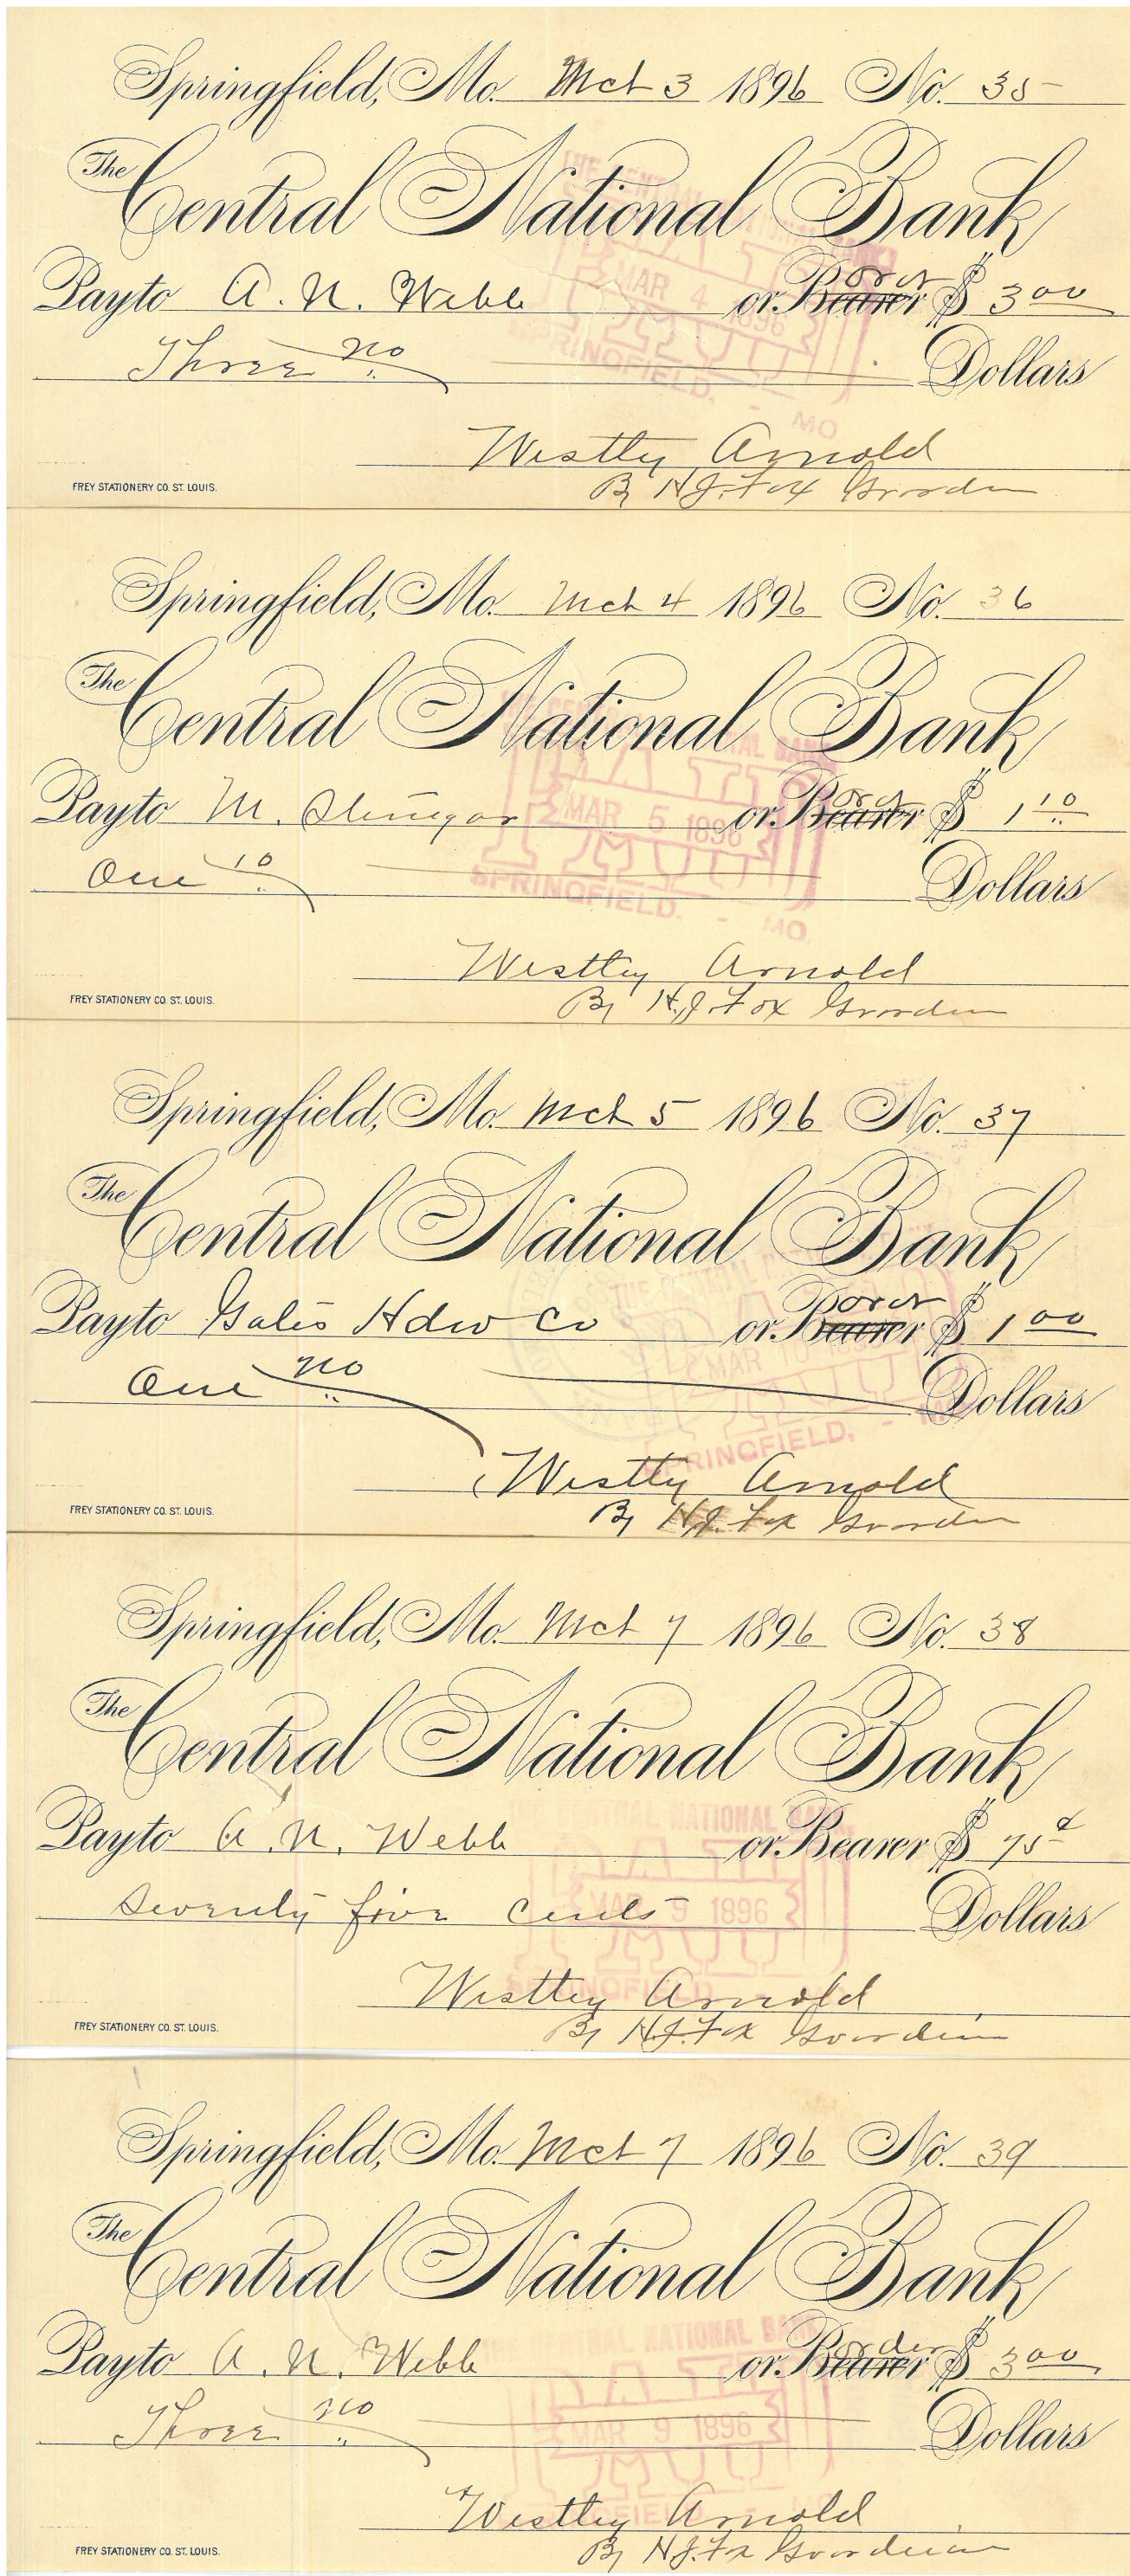 Springfield, Mo. Mch 3 1896 No. 35
The Central National Bank
Pay to A. N. Webb or Bearer order $ 3 00
Three no Dollars
THE CENTRAL NATIONAL BANK
PAID
MAR 4 1896
SPRINGFIELD, - MO
Westley Arnold
By H. J. Fox Guardian
FREY STATIONERY CO. ST. LOUIS.
Springfield, Mo. Mch 4 1896 No. 36
The Central National Bank
Pay to M. or Bearer $ 1 10
One 10 Dollars
MAR 5 1896
SPRINGFIELD. - MO
Westley Arnold
By H. J. Fox Guardian
FREY STATIONERY CO. ST. LOUIS.
Springfield, Mo. Mch 5 1896 No. 37
The Central National Bank
Pay to Hdw Co or Bearer order $ 1 00
One no Dollars
MAR
SPRINGFIELD, -
Westley Arnold
By H. J. Fox Guardian
FREY STATIONERY CO. ST. LOUIS.
Springfield, Mo. Mch 7 1896 No. 38
The Central National Bank
Pay to A. N. Webb or Bearer $ 75 ¢
Seventy five cents Dollars
CENTRAL NATIONAL BANK
MAR 9 1896
SPRINGFIELD
Westley Arnold
By H. J. Fox Guardian
FREY STATIONERY CO. ST. LOUIS.
Springfield, Mo. Mch 7 1896 No. 39
The Central National Bank
Pay to A. N. Webb or Bearer order $ 3 00
Three no Dollars
NATIONAL BANK
MAR 9 1896
Westley Arnold
By H. J. Fox Guardian
FREY STATIONERY CO. ST. LOUIS.